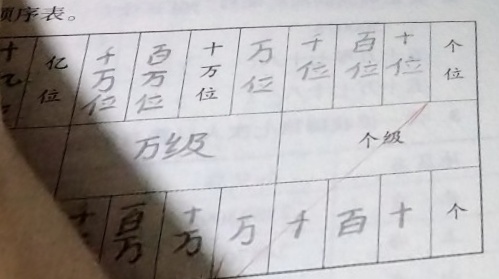 顺序表。
十亿 亿位 千万位 百万位 十万位 万位 千位 百位 十位 个位
万级 个级
百万 十万 万 千 百 十 个